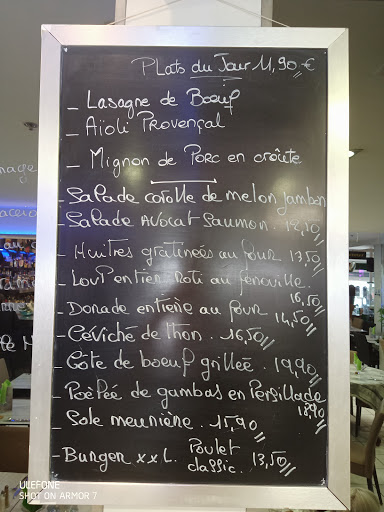 Plats du Jour 11,90 €
_ Lasagne de Bœuf
_ Aïoli Provençal
_ Mignon de Porc en croûte
_ Salade corolle de melon Jambon
_ Salade Avocat Saumon.
_ Huitres gratinées au four 13,50
_ Loup entier Roti au fenouille.
16,50
_ Dorade entière au four
14,50
_ Céviché de thon. 16,50
_ Côte de boeuf grilleé. 19,90
_ Poèlée de gambas en Persillade
18,90
_ Sole meunière. 15,90
_ Burger xxL. Poulet
classic. 13,50
ULEFONE
SHOT ON ARMOR 7